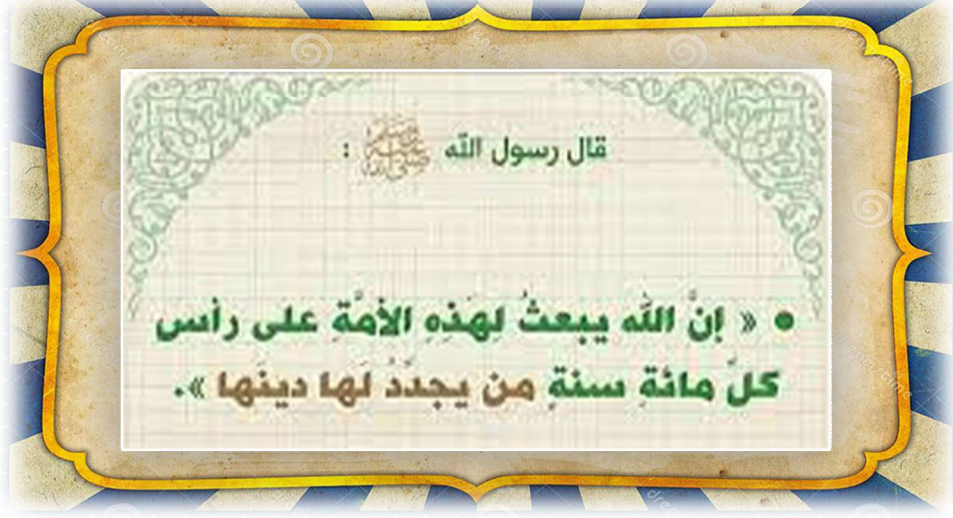 قال رسول الله ﷺ :
• « إنَّ الله يبعثُ لِهَذِهِ الأمَّةِ على رأس
كلِّ مائةِ سنةٍ من يجدِّدُ لَها دينَها ».